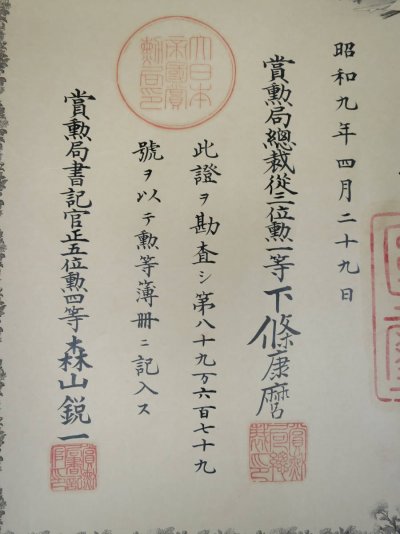 昭和九年四月二十九日
賞勲局總裁從三位勲一等下條康麿
此證ヲ勘査シ第八十九万六百七十九
號ヲ以テ勲等簿册ニ記入ス
賞勲局書記官正五位勲四等森山鋭一
大日本
帝國賞
勲局印